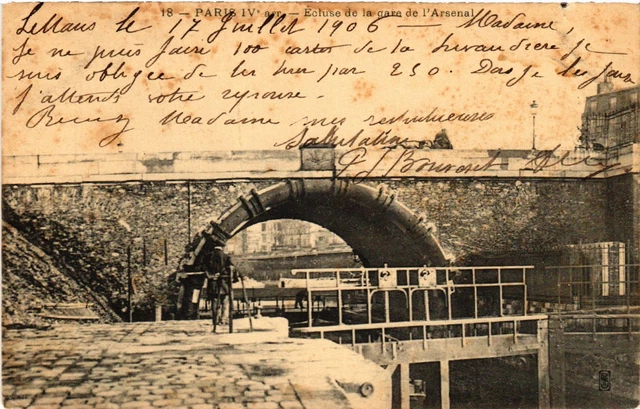 18 - PARIS IVᵉ arr. - Ecluse de la gare de l'Arsenal
Le Mans le 17 Juillet 1906 - Madame,
Je ne puis faire 100 cartes de la je
suis obligée de les par 250. Dois-je les faire
J'attends votre réponse.
Recevez Madame mes respectueuses
Salutations